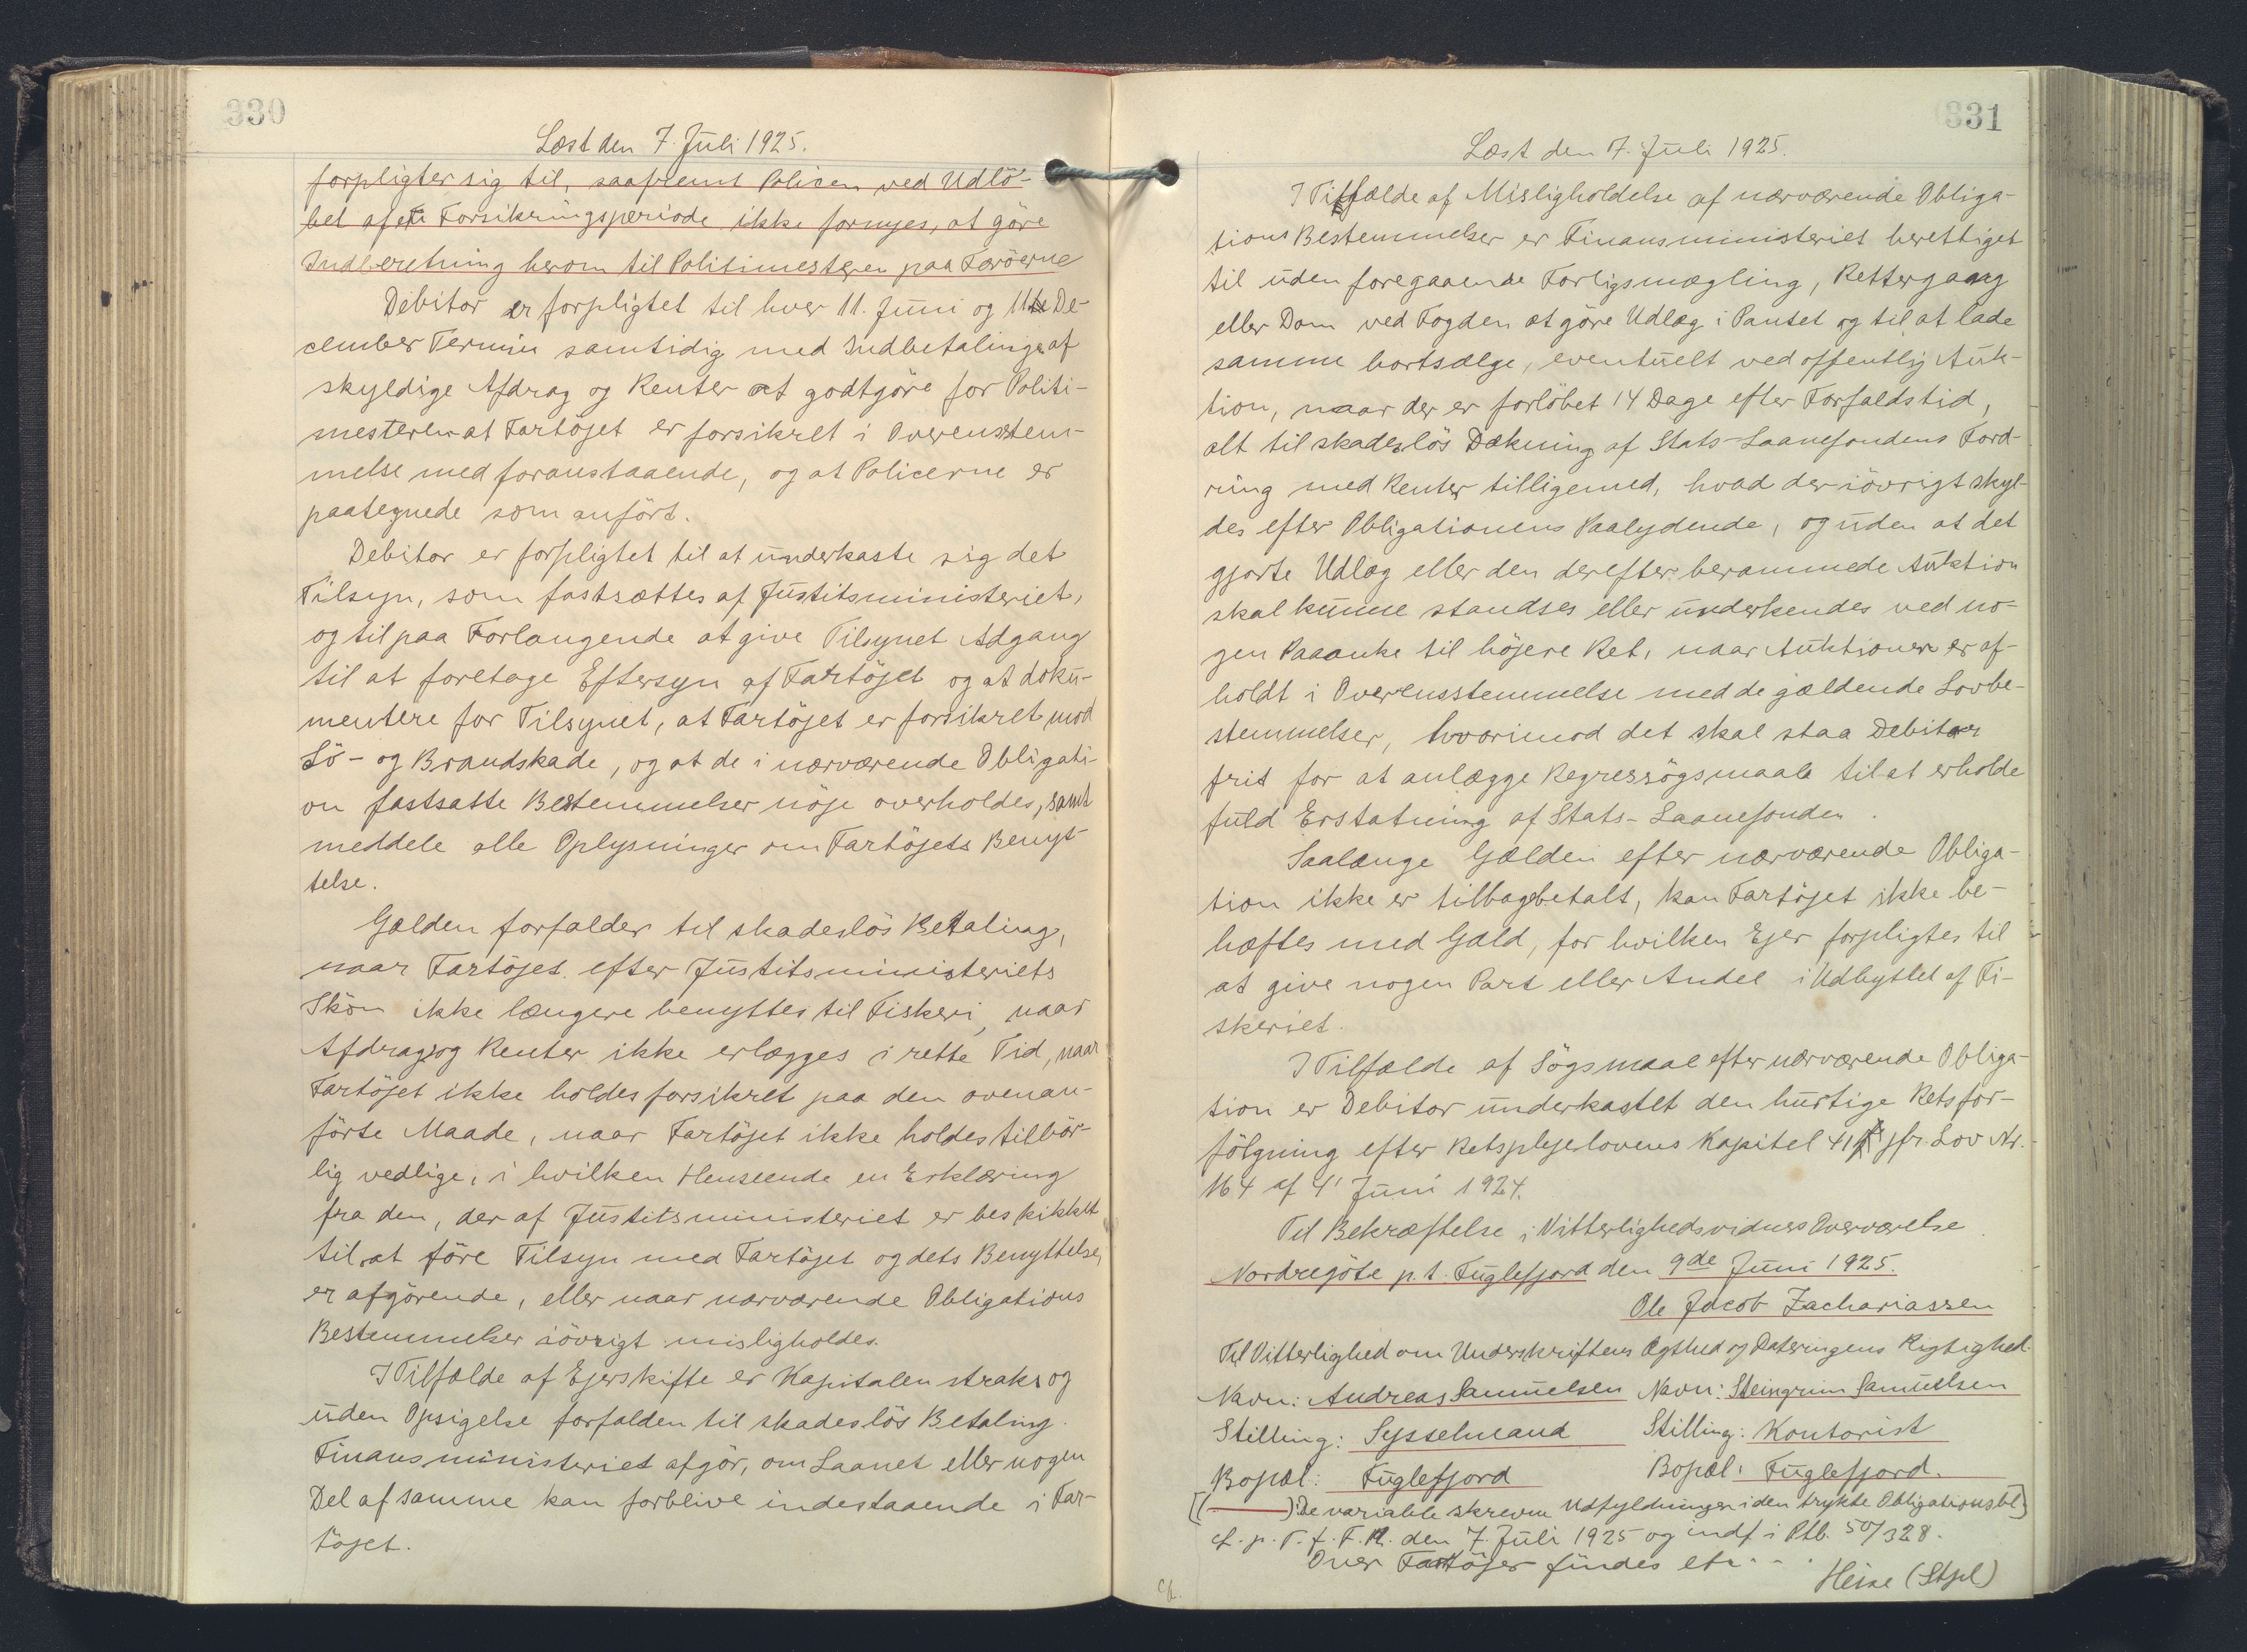 330
Læst den 7. Juli 1925.
forpligter sig til, saafremt Policen ved Udlö-
bet af en Forsikringsperiode ikke fornyes, at göre
Indberetning herom til Politimesteren paa Færöerne
Debitor er forpligtet til hver 11. Juni og 11te De-
cember Termin samtidig med Indbetaling af
skyldige Afdrag og Renter at godtgöre for Politi-
mesteren at Fartöjet er forsikret i Overensstem-
melse med foranstaaende, og at Policerne er
paategnede som anfört.
Debitor er forpligtet til at underkaste sig det
Tilsyn, som fastsættes af Justitsministeriet,
og til paa Forlangende at give Tilsynet Adgang
til at foretage Eftersyn af Fartöjet og at doku-
mentere for Tilsynet, at Fartöjet er forsikret mod
Sö- og Brandskade, og at de i nærværende Obligati-
on fastsatte Bestemmelser nöje overholdes, samt
meddele alle Oplysninger om Fartöjets Benyt-
telse.
Gælden forfalder til skadeslös Betaling,
naar Fartöjet efter Justitsministeriets
Skön ikke længere benyttes til Fiskeri, naar
Afdrag og Renter ikke erlægges i rette Tid, naar
Fartöjet ikke holdes forsikret paa den ovenan-
förte Maade, naar Fartöjet ikke holdes tilbör-
lig vedlige, i hvilken Henseende en Erklæring
fra den, der af Justitsministeriet er beskikket
til at före Tilsyn med Fartöjet og dets Benyttelse,
er afgörende, eller naar nærværende Obligations
Bestemmelser iövrigt misligholdes.
I Tilfælde af Ejerskifte er Kapitalen straks og
uden Opsigelse forfalden til skadeslös Betaling.
Finansministeriet afgör, om Laanet eller nogen
Del af samme kan forblive indestaaende i Far-
töjet.
331
Læst den 7. Juli 1925.
I Tilfælde af Misligholdelse af nærværende Obliga-
tions Bestemmelser er Finansministeriet berettiget
til uden foregaaende Forligsmægling, Rettergang
eller Dom ved Fogden at göre Udlæg i Pantet og til at lade
samme bortsælge, eventuelt ved offentlig Auk-
tion, naar der er forlöbet 14 Dage efter Forfaldstid,
alt til skadeslös Dækning af Stats-Laanefondens Ford-
ring med Renter tilligemed, hvad der iövrigt skyl-
des efter Obligationens Paalydende, og uden at det
gjorte Udlæg eller den derefter berammede Auktion
skal kunne standses eller underkendes ved no-
gen Paaanke til höjere Ret, naar Auktionen er af-
holdt i Overensstemmelse med de gældende Lovbe-
stemmelser, hvorimod det skal staa Debitor
frit for at anlægge Regressögsmaal til at erholde
fuld Erstatning af Stats-Laanefonden.
Saalænge Gælden efter nærværende Obliga-
tion ikke er tilbagebetalt, kan Fartöjet ikke be-
hæftes med Gæld, for hvilken Ejer forpligtes til
at give nogen Part eller Andel i Udbyttet af Fi-
skeriet.
I Tilfælde af Sögsmaal efter nærværende Obliga-
tion er Debitor underkastet den hurtige Retsfor-
fölgning efter Retsplejelovens Kapitel 41 jfr. Lov Nr.
164 af 4' Juni 1924.
Til Bekræftelse i Vitterlighedsvidners Overværelse.
Nordregöte p.t. Fuglefjord den 9de Juni 1925.
Ole Jacob Zachariassen
Til Vitterlighed om Underskriftens Ægthed og Dateringens Rigtighed.
Navn: Andreas Samuelsen Navn: Steingrim Samuelsen
Stilling: Sysselmand Stilling: Kontorist
Bopæl: Fuglefjord Bopæl: Fuglefjord.
[( ) De variable skrevne Udfyldninger i den trykte Obligationsbl]
L. p. T. f. F. R. den 7 Juli 1925 og indf i Ptb. 50/328.
Over Fartöjer findes etc. - - .
Heise (Stpl)